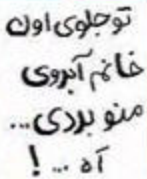 تو جلوی اون
خانم آبروی
منو بردی...
آه ...!